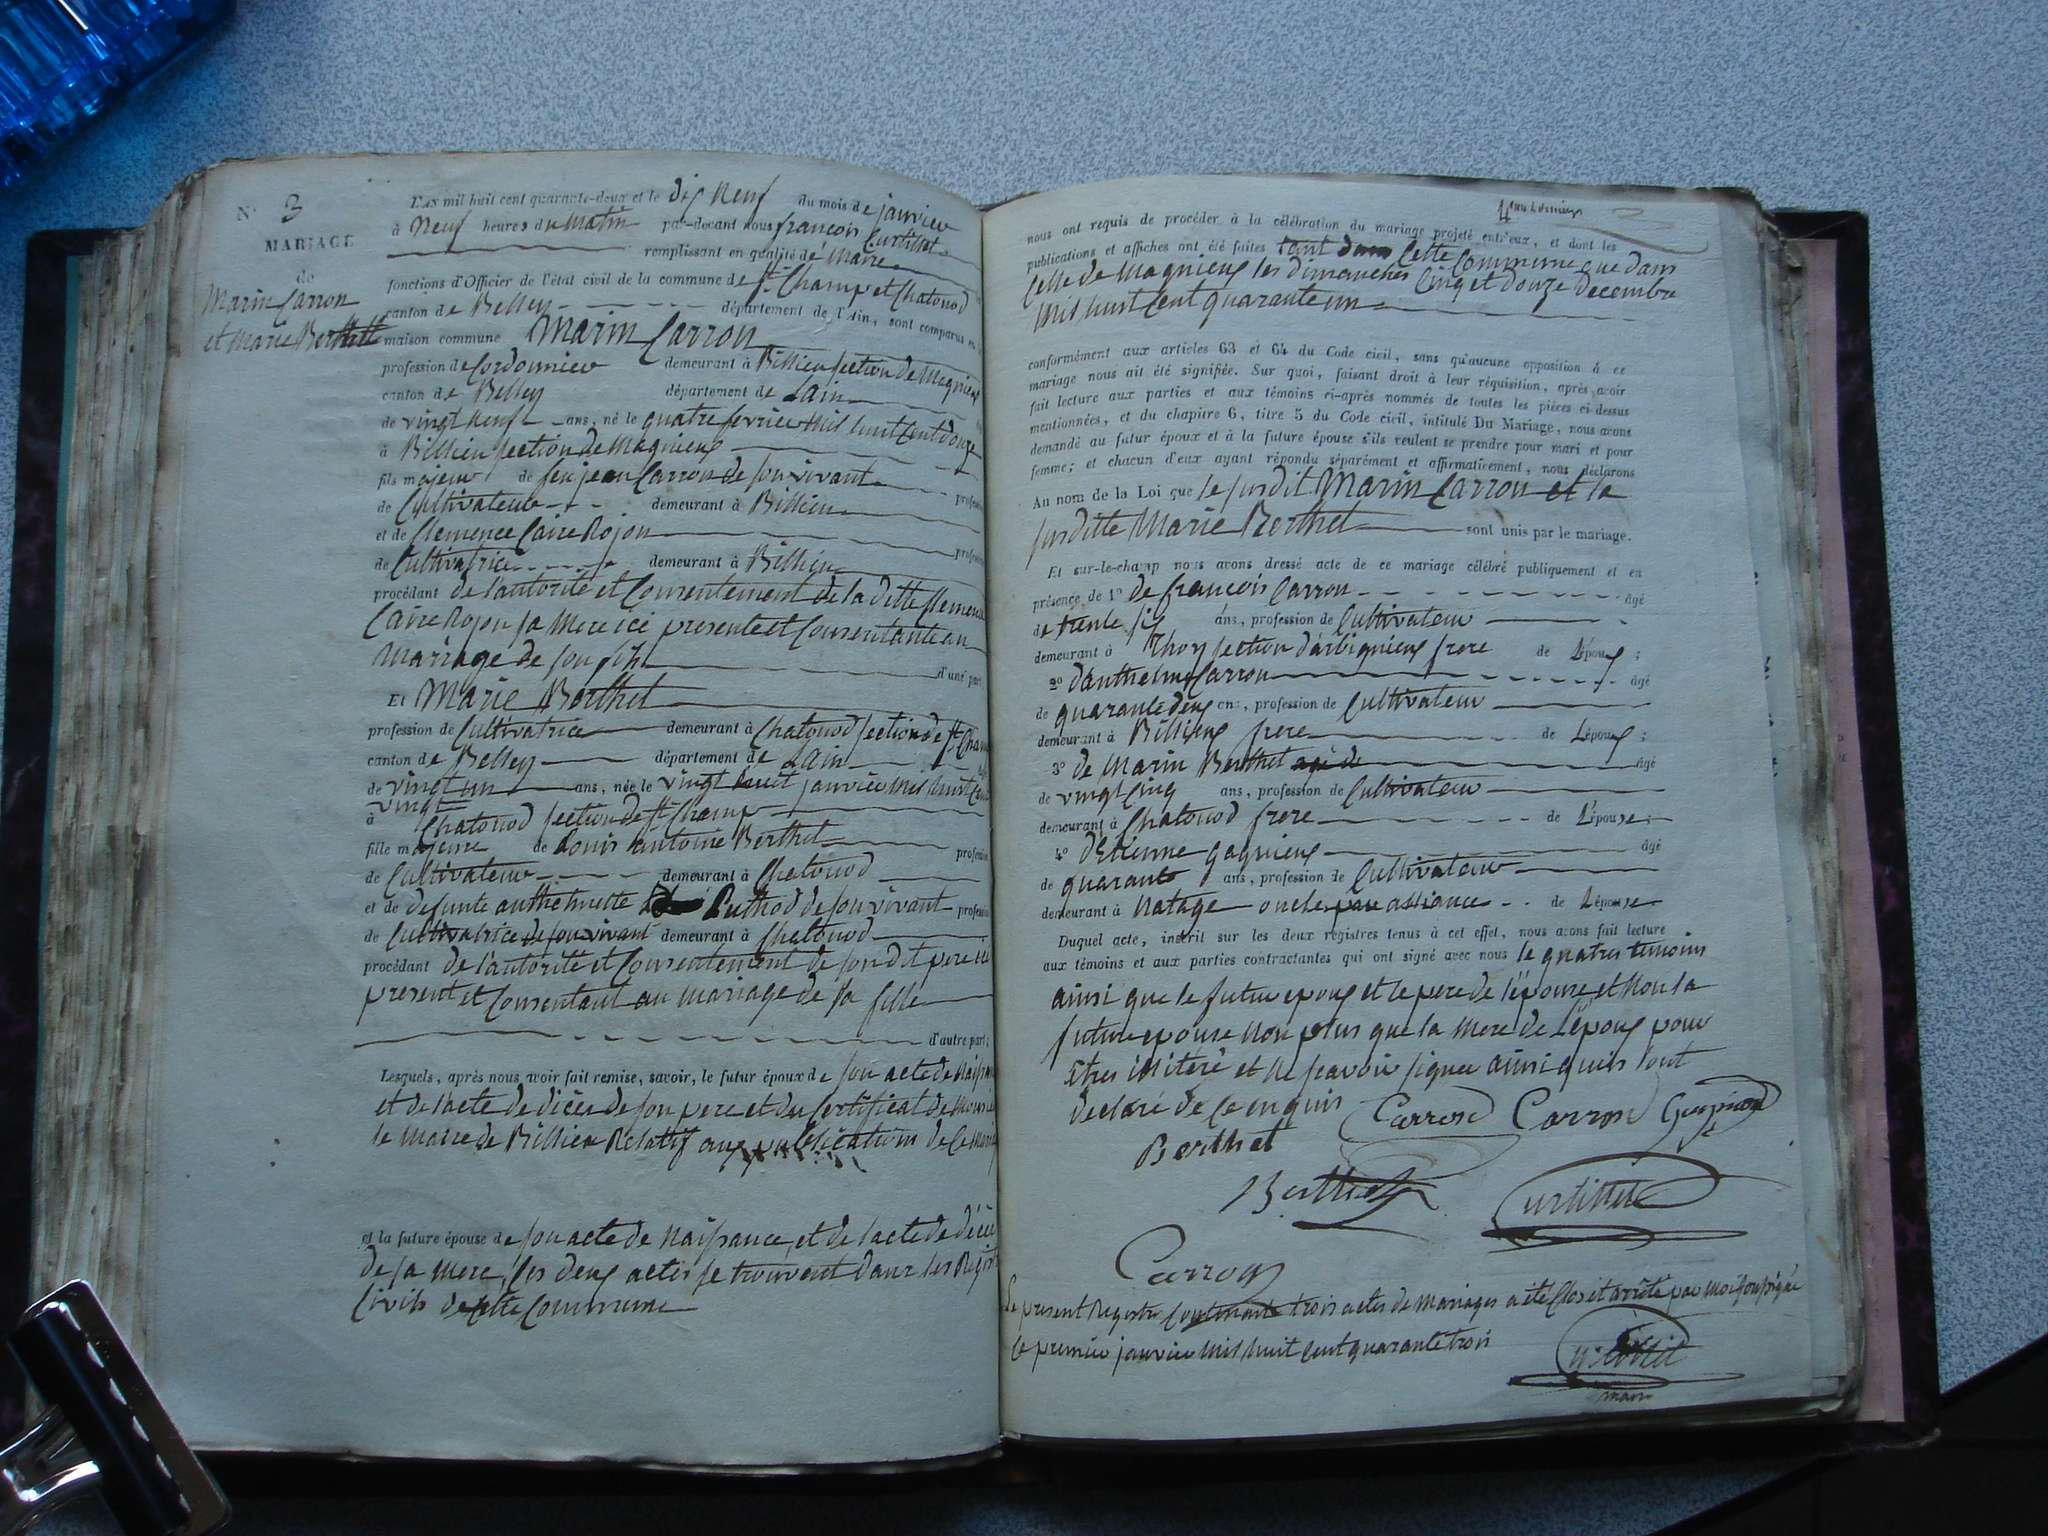 N° 3
MARIAGE
de
Marin Carron
et Marie Berthet
L'an mil huit cent quarante-deux et le dix neuf du mois de janvier
à neuf heures du matin par-devant nous françois Curtillet
remplissant en qualité de Maire
fonctions d'Officier de l'état civil de la commune de St Champ et Chatonod
canton de Belley département de l'Ain, sont comparus en
maison commune Marin Carron
profession de Cordonnier demeurant à Billieu section de Magnieux
canton de Belley département de Lain
de vingt neuf ans, né le quatre fevrier mil huit cent douze
à Billieu section de Magnieux
fils majeur de feu jean Carron de son vivant profession
de Cultivateur demeurant à Billieu
et de Clemence Caire Rojon profession
de Cultivatrice demeurant à Billieu
procédant de l'autorité et Consentement de la ditte Clemence
Caire Rojon sa Mere ici presente et Consentante au
Mariage de son fils d'une part
Et Marie Berthet
profession de Cultivatrice demeurant à Chatonod section de St Champ
canton de Belley département de Lain
de vingt un ans, née le vingt huit janvier mil huit Cent
vingt
à Chatonod section de St Champ
fille majeure de Louis antoine Berthet profession
de Cultivateur demeurant à Chatonod
et de defunte anthelmette Puthod de son vivant profession
de Cultivatrice de son vivant demeurant à Chatonod
procédant de l'autorité et Consentement de son dit pere ici
present et Consentant au mariage de sa fille
d'autre part;
Lesquels, après nous avoir fait remise, savoir, le futur époux de son acte de Naissance
et de l'acte de décès de son pere et du Certificat de Monsieur
le Maire de Billieu Relatif aux publications de Ce Mariage
et la future épouse de son acte de Naissance, et de l'acte de décès
de sa mere, les deux actes se trouvent dans les Registres
Civils de cette Commune
nous ont requis de procéder à la célébration du mariage projeté entr'eux, et dont les
publications et affiches ont été faites tant dans Cette Commune que dans
Celle de Magnieux les dimanches Cinq et douze decembre
Mil huit Cent quarante un
conformément aux articles 63 et 64 du Code civil, sans qu'aucune opposition à ce
mariage nous ait été signifiée. Sur quoi, faisant droit à leur réquisition, après avoir
fait lecture aux parties et aux témoins ci-après nommés de toutes les pièces ci-dessus
mentionnées, et du chapitre 6, titre 5 du Code civil, intitulé Du Mariage, nous avons
demandé au futur époux et à la future épouse s'ils veulent se prendre pour mari et pour
femme; et chacun d'eux ayant répondu séparément et affirmativement, nous déclarons
Au nom de la Loi que le susdit Marin Carron et la
susditte Marie Berthet sont unis par le mariage.
Et sur-le-champ nous avons dressé acte de ce mariage célébré publiquement et en
présence de 1° de françois Carron âgé
de trente six ans, profession de Cultivateur
demeurant à Thoy section d'arbignieux frere de Lépoux;
2° d'anthelme Carron âgé
de quarante deux ans, profession de Cultivateur
demeurant à Billieux frere de Lépoux;
3° de Marin Berthet agé de âgé
de vingt cinq ans, profession de Cultivateur
demeurant à Chatonod frere de L'épouse;
4° d'Etienne Gagnieux âgé
de quarante ans, profession de Cultivateur
demeurant à Natage oncle par alliance de Lépouse
Duquel acte, inscrit sur les deux registres tenus à cet effet, nous avons fait lecture
aux témoins et aux parties contractantes qui ont signé avec nous le quatres temoins
ainsi que le futur epoux et le pere de l'épouse et Non la
future epouse Non plus que la Mere de L'époux pour
Etres illitéré et Ne scavoir signer ainsi qu'eis sont
declaré de Ce enquis
Carron Carron Gagnieux
Berthet
Berthet
Curtillet
Carron
Le present Registre Contenant trois actes de Mariages a été Clos et arrêté par Moi soussigné
le premier janvier Mil huit cent quarante trois
Curtillet
maire